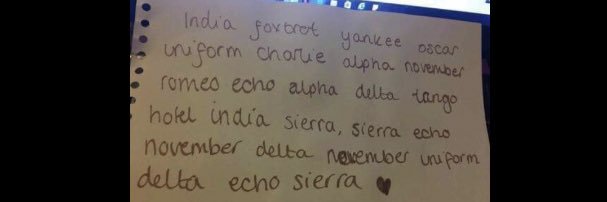 India foxtrot yankee oscar
uniform charlie alpha november
romeo echo alpha delta tango
hotel india sierra, sierra echo
november delta november uniform
delta echo sierra ♥